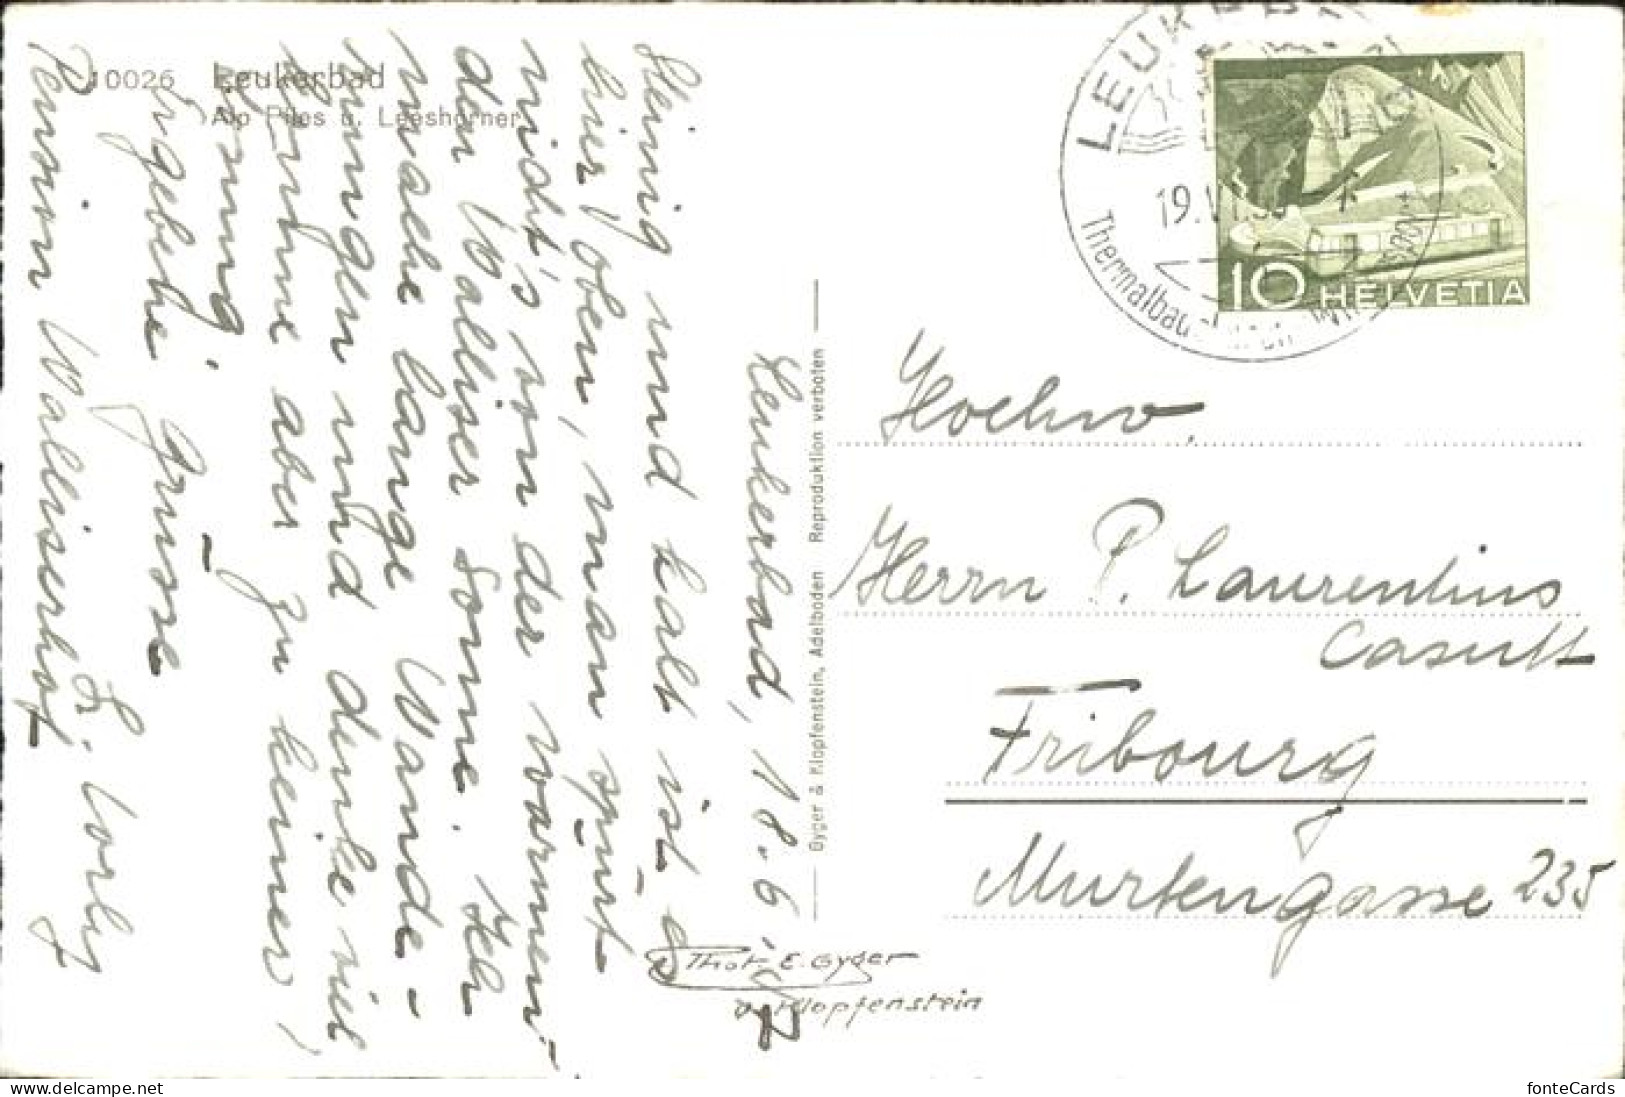 10026 Leukerbad
Alp Files u. Leeshörner
Leukerbad, 18.6.
Steinig und kalt ist es
hier oben, man spürt
nicht's von der warmen
der Walliser Sonne. Ich
mache lange Wande-
rungen und denke viel,
komme aber zu keiner
Lösung.
Ergebene Grüsse
Pension Walliserhof
Byger & Klopfenstein, Adelboden Reproduktion verboten
Phot. E. Gyger
Klopfenstein
LEUKERBAD
19.VI.
Thermalbad
10 HELVETIA
Hochw.
Herrn P. Laurentius
Casutt
Fribourg
Murtengasse 235
fonteCards